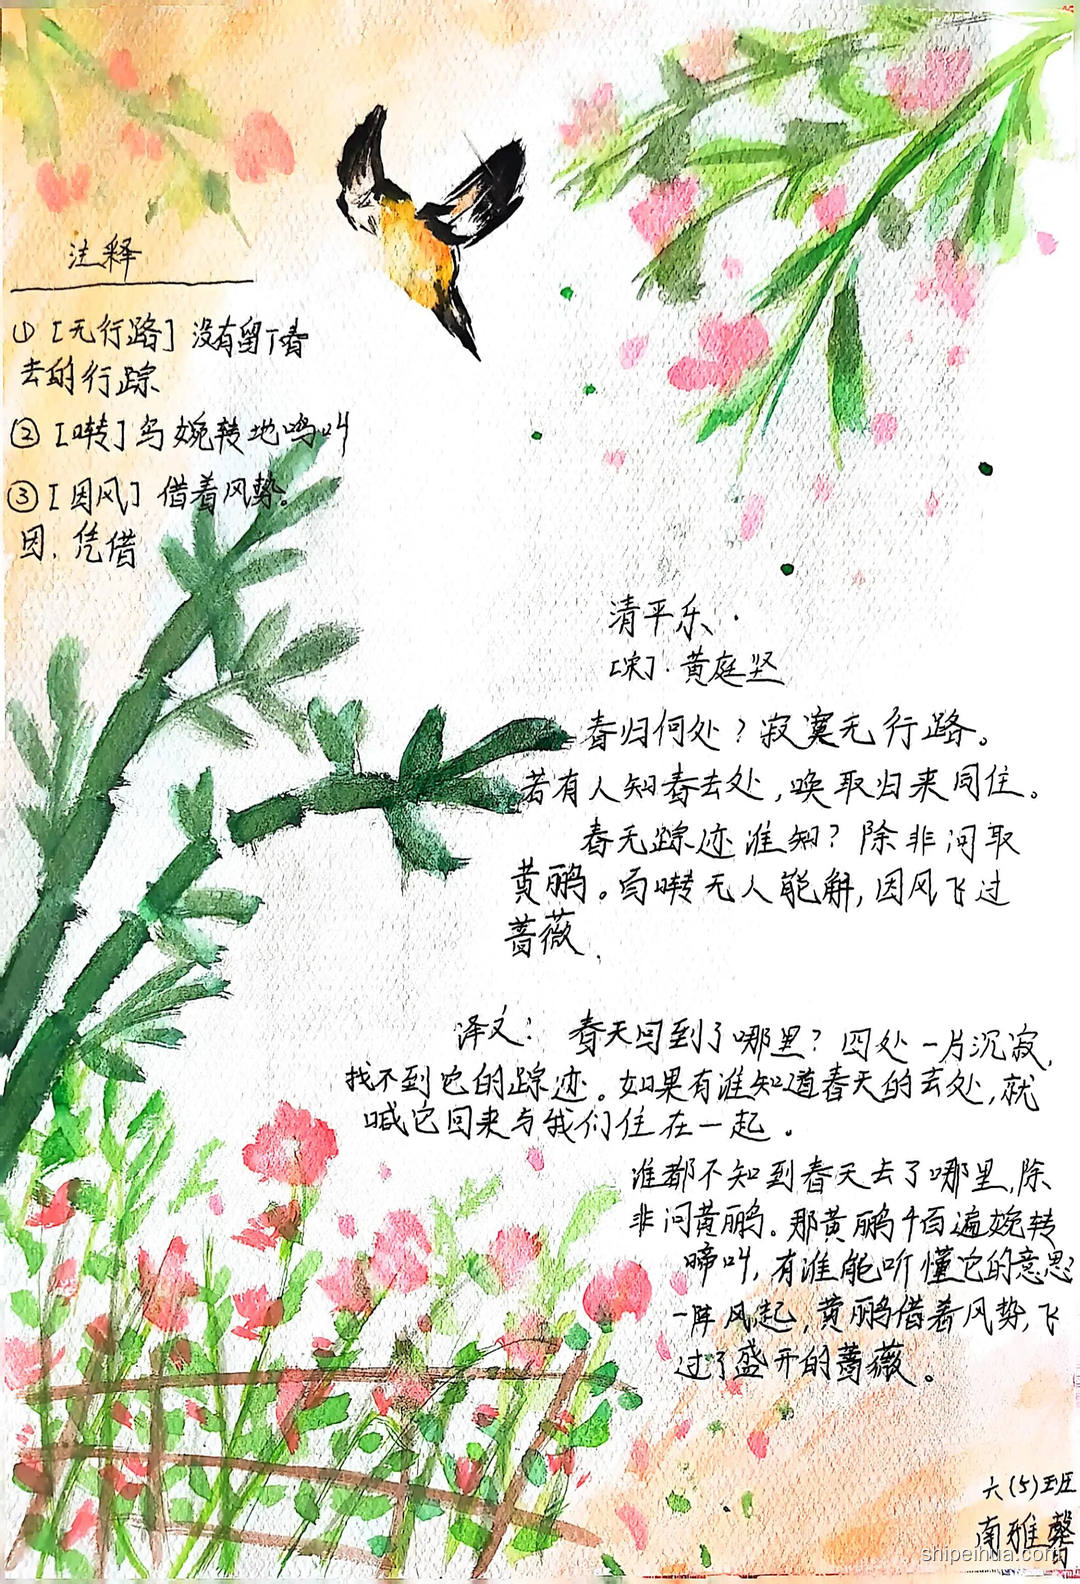 注释
① [无行路] 没有留下春
去的行踪
② [啭] 鸟婉转地鸣叫
③ [因风] 借着风势。
因.凭借
清平乐.
[宋].黄庭坚
春归何处?寂寞无行路。
若有人知春去处,唤取归来同住。
春无踪迹谁知?除非问取
黄鹂。百啭无人能解,因风飞过
蔷薇.
译文: 春天回到了哪里?四处一片沉寂,
找不到它的踪迹。如果有谁知道春天的去处,就
喊它回来与我们住在一起。
谁都不知到春天去了哪里,除
非问黄鹂。那黄鹂千百遍婉转
啼叫,有谁能听懂它的意思?
一阵风起,黄鹂借着风势,飞
过了盛开的蔷薇。
六(5)班
南雅馨
shipeihua.com